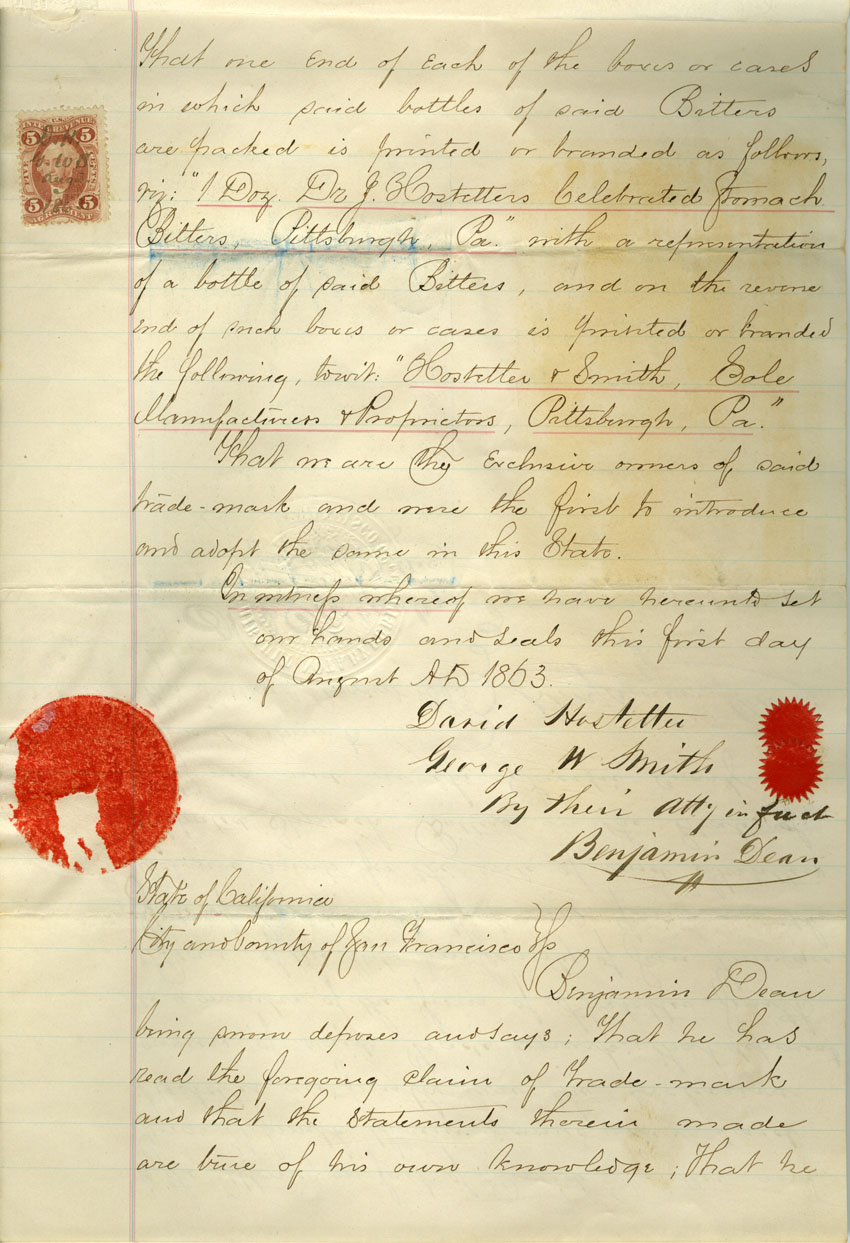 That one end of each of the boxes or cases
in which said bottles of said Bitters
are packed is printed or branded as follows,
viz: "1 Doz. Dr J. Hostetters Celebrated Stomach
Bitters, Pittsburgh, Pa." with a representation
of a bottle of said Bitters, and on the reverse
end of such boxes or cases is printed or branded
the following, towit: "Hostetter & Smith, Sole
Manufacturers & Proprietors, Pittsburgh, Pa."
That we are the exclusive owners of said
trade-mark and were the first to introduce
and adopt the same in this State.
In witness whereof we have hereunto set
our hands and seals this first day
of August AD 1863.
David Hostetter
George W Smith
By their Atty in fact
Benjamin Dean
State of California
City and County of San Francisco } ss
Benjamin Dean
being sworn deposes and says; That he has
read the foregoing claim of trade-mark
and that the statements therein made
are true of his own knowledge; That he
5 5
5 5